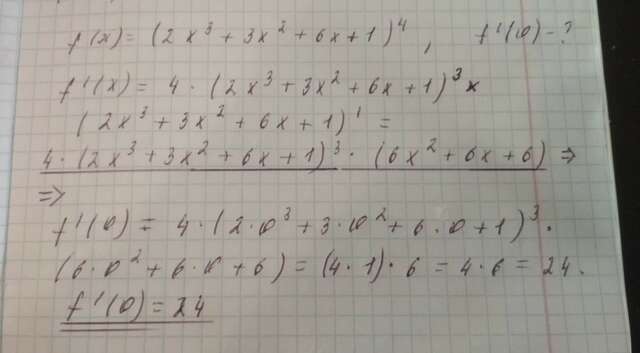 f(x) = (2x³ + 3x² + 6x + 1)⁴, f'(0) - ?
f'(x) = 4 · (2x³ + 3x² + 6x + 1)³ ×
(2x³ + 3x² + 6x + 1)' =
4 · (2x³ + 3x² + 6x + 1)³ · (6x² + 6x + 6) ⇒
⇒
f'(0) = 4 · (2 · 0³ + 3 · 0² + 6 · 0 + 1)³ ·
(6 · 0² + 6 · 0 + 6) = (4 · 1) · 6 = 4 · 6 = 24.
f'(0) = 24